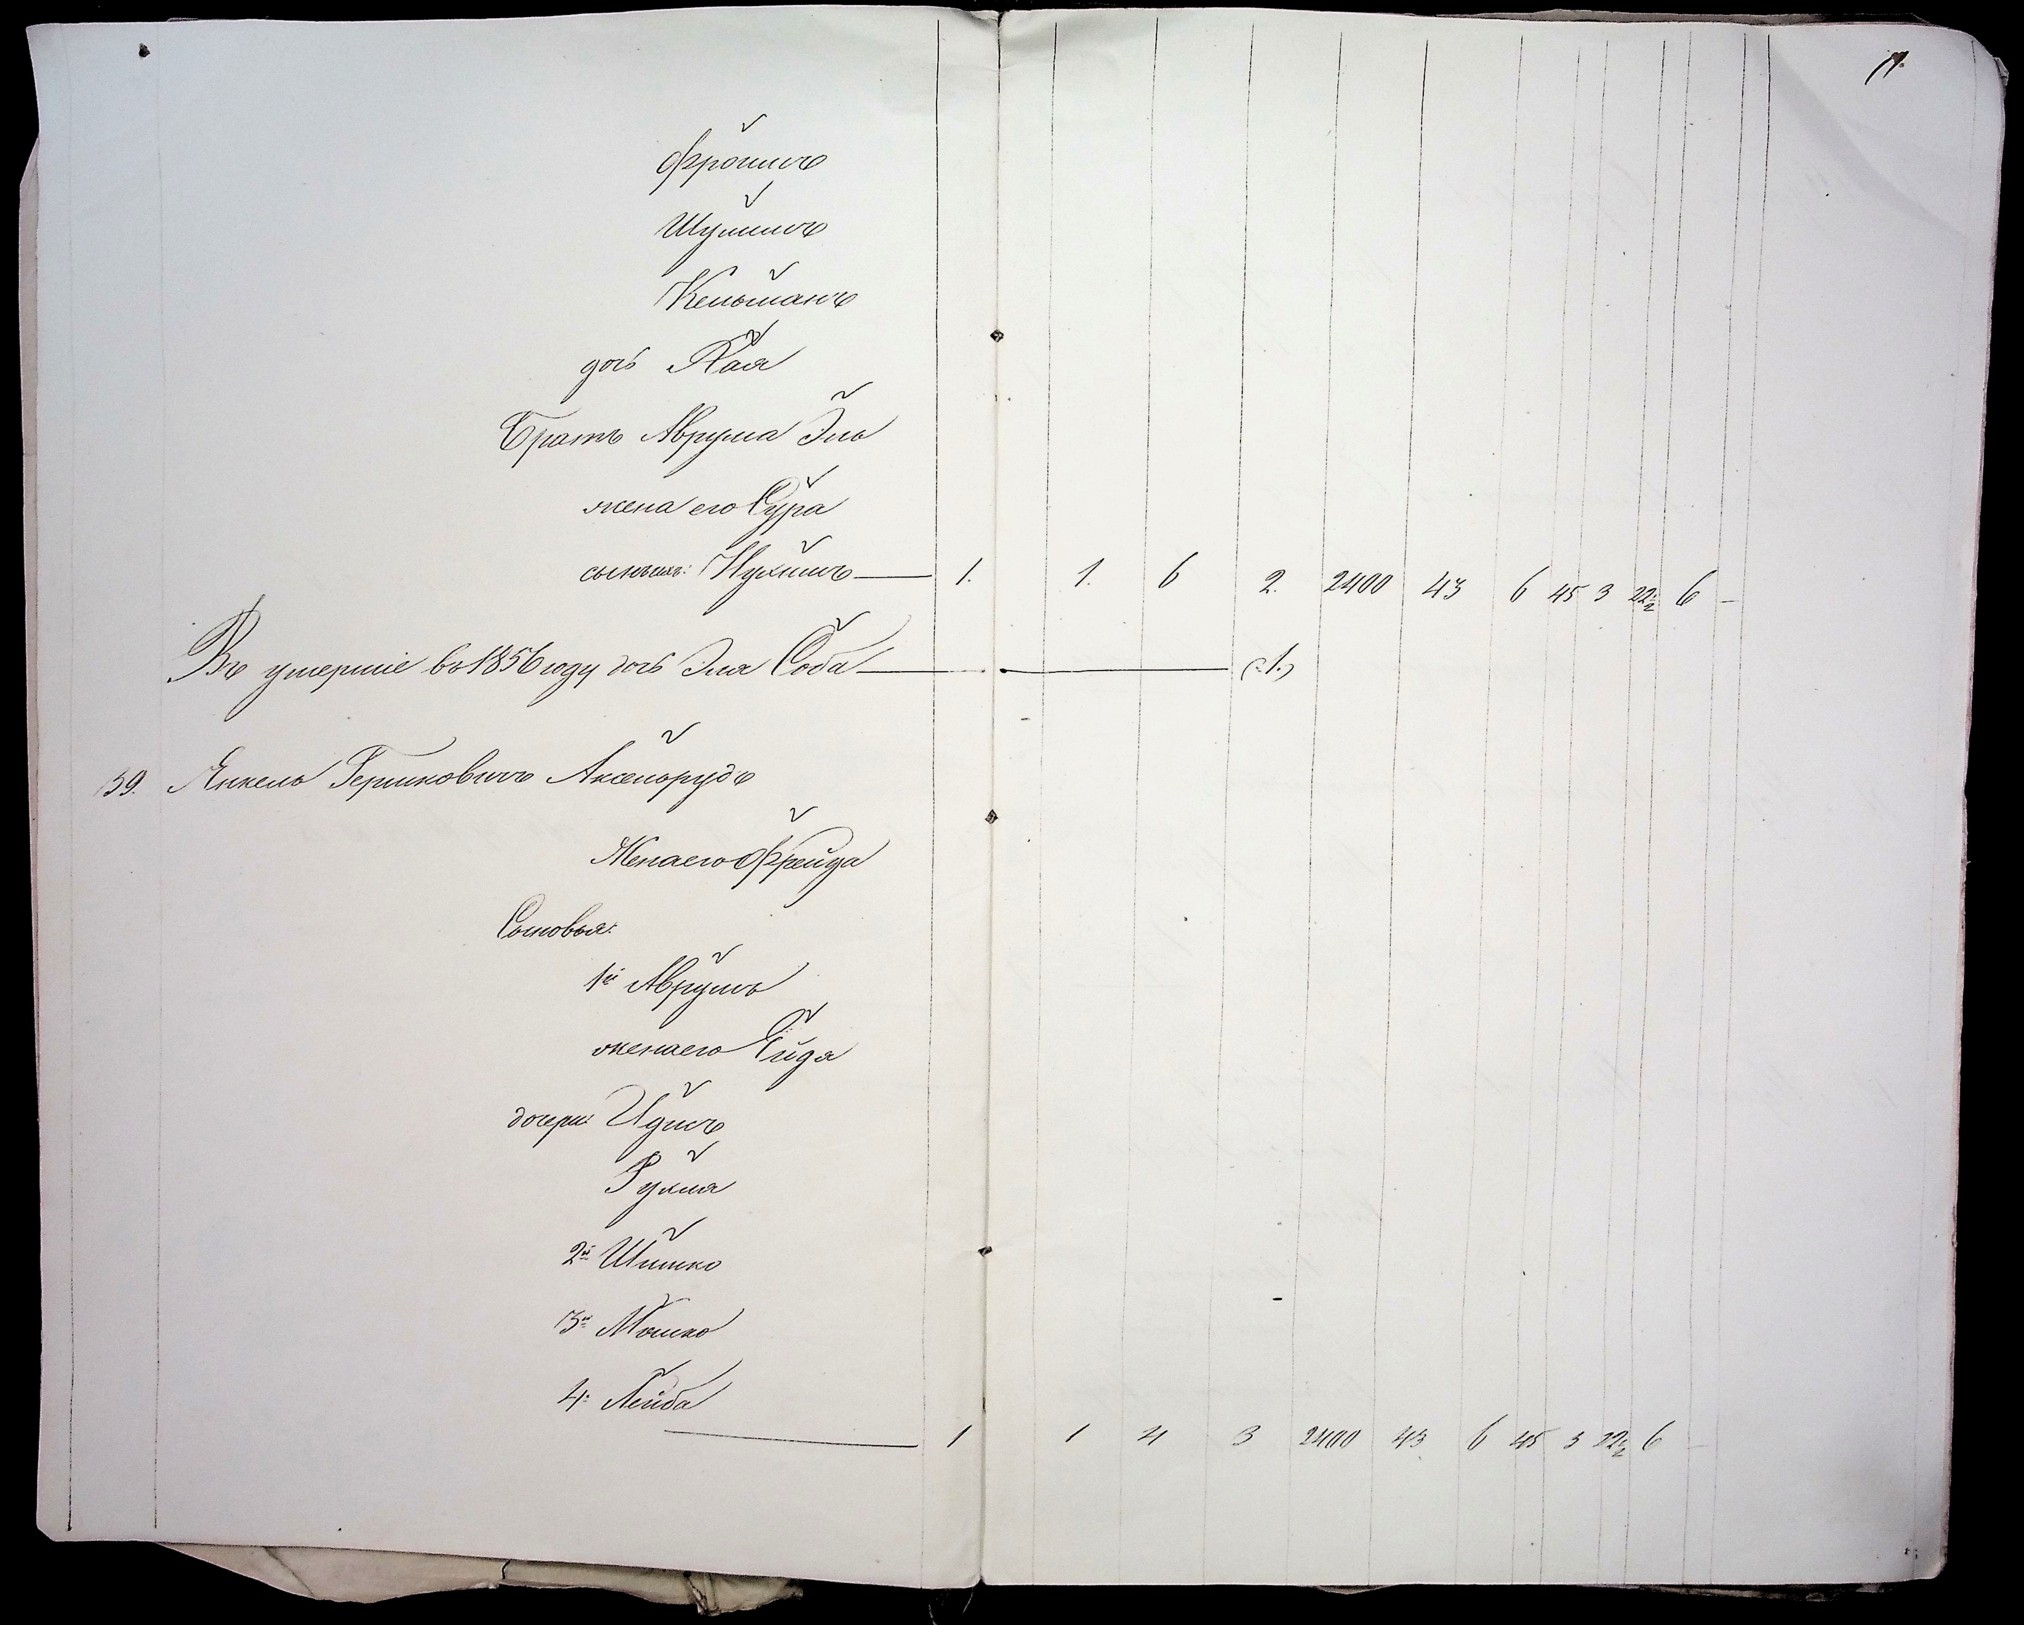 Фроимъ
Шулимъ
Кельманъ
дочь Хая
Братъ Аврума Эль
жена его Сура
сынъ ихъ: Нухимъ — 1. 1. 6 2. 2400 43 6 45 3 22½ 6 —
Въ умершіе въ 1856 году дочь Эля Соба — (:1.:)
39. Янкель Гершковичъ Аксельрудъ
Жена его Фрейда
Сыновья:
1й Аврумъ
жена его Гида
дочери: Идисъ
Рухля
2й Шимко
3й Мошко
4й Лейба
1 1 4 3 2400 43 6 45 3 22½ 6 —